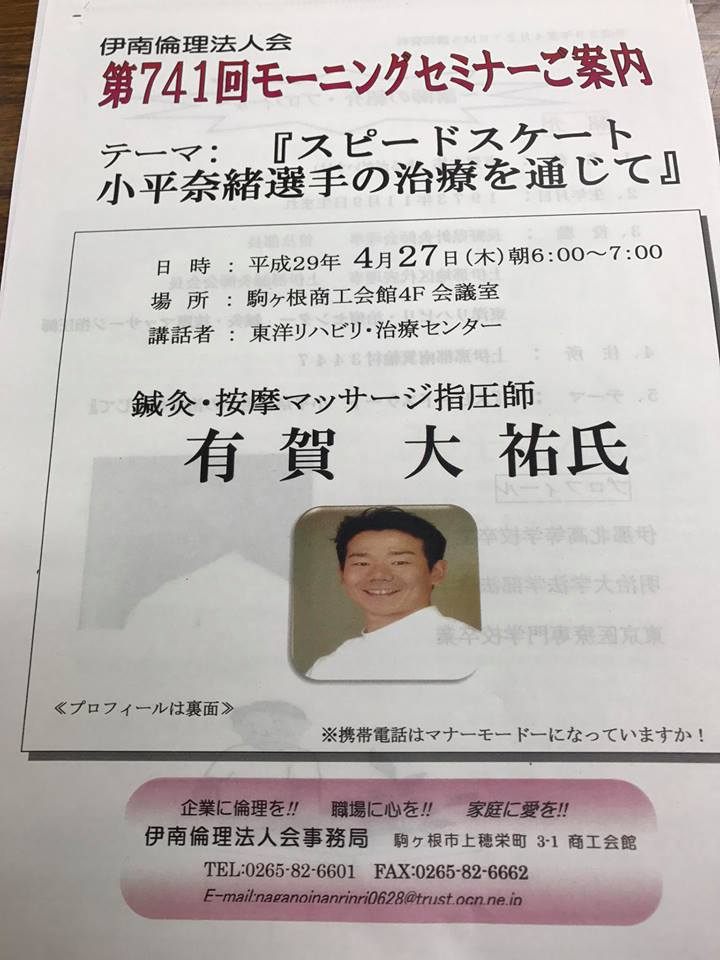 伊南倫理法人会
第741回モーニングセミナーご案内
テーマ： 『スピードスケート
小平奈緒選手の治療を通じて』
日 時 ： 平成29年 4月27日(木)朝6:00～7:00
場 所 ： 駒ヶ根商工会館4F 会議室
講話者 ： 東洋リハビリ・治療センター
鍼灸・按摩マッサージ指圧師
有 賀 大 祐氏
≪プロフィールは裏面≫
※携帯電話はマナーモードーになっていますか！
企業に倫理を!! 職場に心を!! 家庭に愛を!!
伊南倫理法人会事務局 駒ヶ根市上穂栄町 3-1 商工会館
TEL:0265-82-6601 FAX:0265-82-6662
E-mail:naganoinanrinri0628@trust.ocn.ne.jp